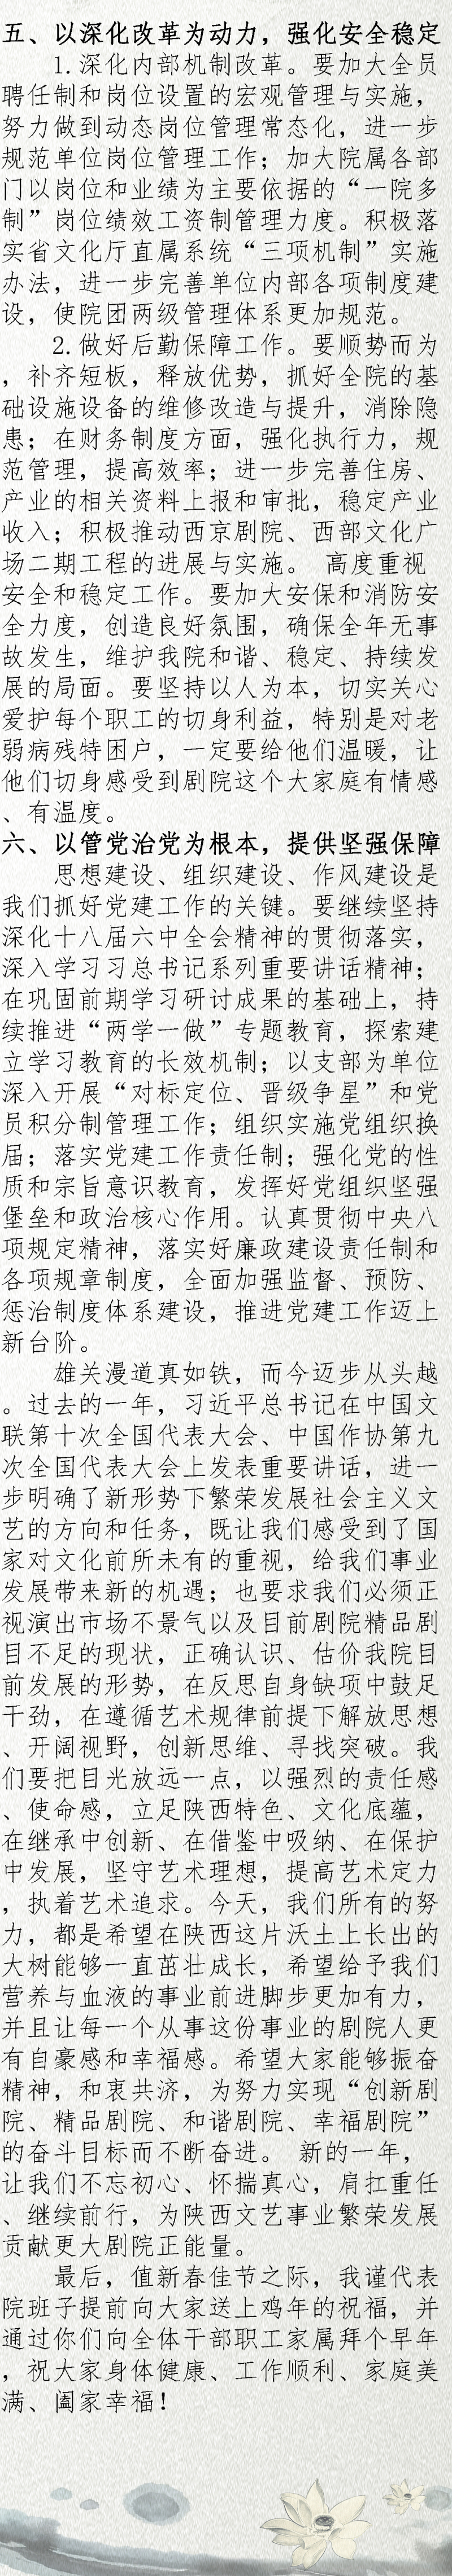 五、以深化改革为动力，强化安全稳定
1.深化内部机制改革。要加大全员
聘任制和岗位设置的宏观管理与实施，
努力做到动态岗位管理常态化，进一步
规范单位岗位管理工作；加大院属各部
门以岗位和业绩为主要依据的“一院多
制”岗位绩效工资制管理力度。积极落
实省文化厅直属系统“三项机制”实施
办法，进一步完善单位内部各项制度建
设，使院团两级管理体系更加规范。
2.做好后勤保障工作。要顺势而为
，补齐短板，释放优势，抓好全院的基
础设施设备的维修改造与提升，消除隐
患；在财务制度方面，强化执行力，规
范管理，提高效率；进一步完善住房、
产业的相关资料上报和审批，稳定产业
收入；积极推动西京剧院、西部文化广
场二期工程的进展与实施。 高度重视
安全和稳定工作。要加大安保和消防安
全力度，创造良好氛围，确保全年无事
故发生，维护我院和谐、稳定、持续发
展的局面。要坚持以人为本，切实关心
爱护每个职工的切身利益，特别是对老
弱病残特困户，一定要给他们温暖，让
他们切身感受到剧院这个大家庭有情感
、有温度。
六、以管党治党为根本，提供坚强保障
思想建设、组织建设、作风建设是
我们抓好党建工作的关键。要继续坚持
深化十八届六中全会精神的贯彻落实，
深入学习习总书记系列重要讲话精神；
在巩固前期学习研讨成果的基础上，持
续推进“两学一做”专题教育，探索建
立学习教育的长效机制；以支部为单位
深入开展“对标定位、晋级争星”和党
员积分制管理工作；组织实施党组织换
届；落实党建工作责任制；强化党的性
质和宗旨意识教育，发挥好党组织坚强
堡垒和政治核心作用。认真贯彻中央八
项规定精神，落实好廉政建设责任制和
各项规章制度，全面加强监督、预防、
惩治制度体系建设，推进党建工作迈上
新台阶。
雄关漫道真如铁，而今迈步从头越
。过去的一年，习近平总书记在中国文
联第十次全国代表大会、中国作协第九
次全国代表大会上发表重要讲话，进一
步明确了新形势下繁荣发展社会主义文
艺的方向和任务，既让我们感受到了国
家对文化前所未有的重视，给我们事业
发展带来新的机遇；也要求我们必须正
视演出市场不景气以及目前剧院精品剧
目不足的现状，正确认识、估价我院目
前发展的形势，在反思自身缺项中鼓足
干劲，在遵循艺术规律前提下解放思想
、开阔视野，创新思维、寻找突破。我
们要把目光放远一点，以强烈的责任感
、使命感，立足陕西特色、文化底蕴，
在继承中创新、在借鉴中吸纳、在保护
中发展，坚守艺术理想，提高艺术定力
，执着艺术追求。今天，我们所有的努
力，都是希望在陕西这片沃土上长出的
大树能够一直茁壮成长，希望给予我们
营养与血液的事业前进脚步更加有力，
并且让每一个从事这份事业的剧院人更
有自豪感和幸福感。希望大家能够振奋
精神，和衷共济，为努力实现“创新剧
院、精品剧院、和谐剧院、幸福剧院”
的奋斗目标而不断奋进。 新的一年，
让我们不忘初心、怀揣真心，肩扛重任
、继续前行，为陕西文艺事业繁荣发展
贡献更大剧院正能量。
最后，值新春佳节之际，我谨代表
院班子提前向大家送上鸡年的祝福，并
通过你们向全体干部职工家属拜个早年
，祝大家身体健康、工作顺利、家庭美
满、阖家幸福！